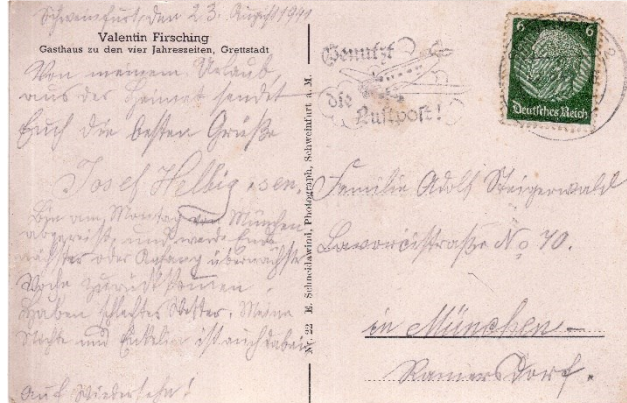 Schweinfurt, den 23. August 1941
Valentin Firsching
Gasthaus zu den vier Jahreszeiten, Grettstadt
Von meinem Urlaub
aus der Heimat sendet
Euch die besten Grüße
Josef Helbig sen.
Bin am Montag von München
abgereist, und werde Ende
nächster oder Anfang übernächster
Woche zurückkommen.
Haben schlechtes Wetter. Meine
und ist auch dabei.
Auf Wiedersehn!
Nr. 22 E. Schneidawind, Photograph, Schweinfurt a. M.
Benutzt
die
Luftpost!
6 6
Deutsches Reich
Familie Adolf Steigerwald
No 70.
in München-
Ramersdorf.